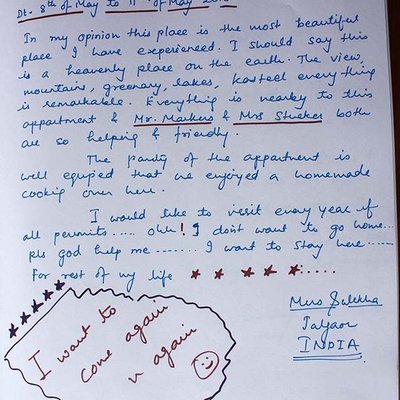 Dt. 8th of May to 11th of May
In my opinion this place is the most beautiful
place I have experienced. I should say this
is a heavenly place on the earth. The view,
mountains, greenary, lakes, kasteel everything
is remarkable. Everything is nearby to this
appartment & Mr. Markus & Mrs both
are so helping & friendly.
The pantry of the appartment is
well equiped that we enjoyed a homemade
cooking over here.
I would like to visit every year if
all permits..... ohh! I don't want to go home...
pls god help me ........ I want to stay here .....
for rest of my life ★ ★ ★ ★ ★.....
★★★★★
I want to
come again
n again
Mrs
INDIA